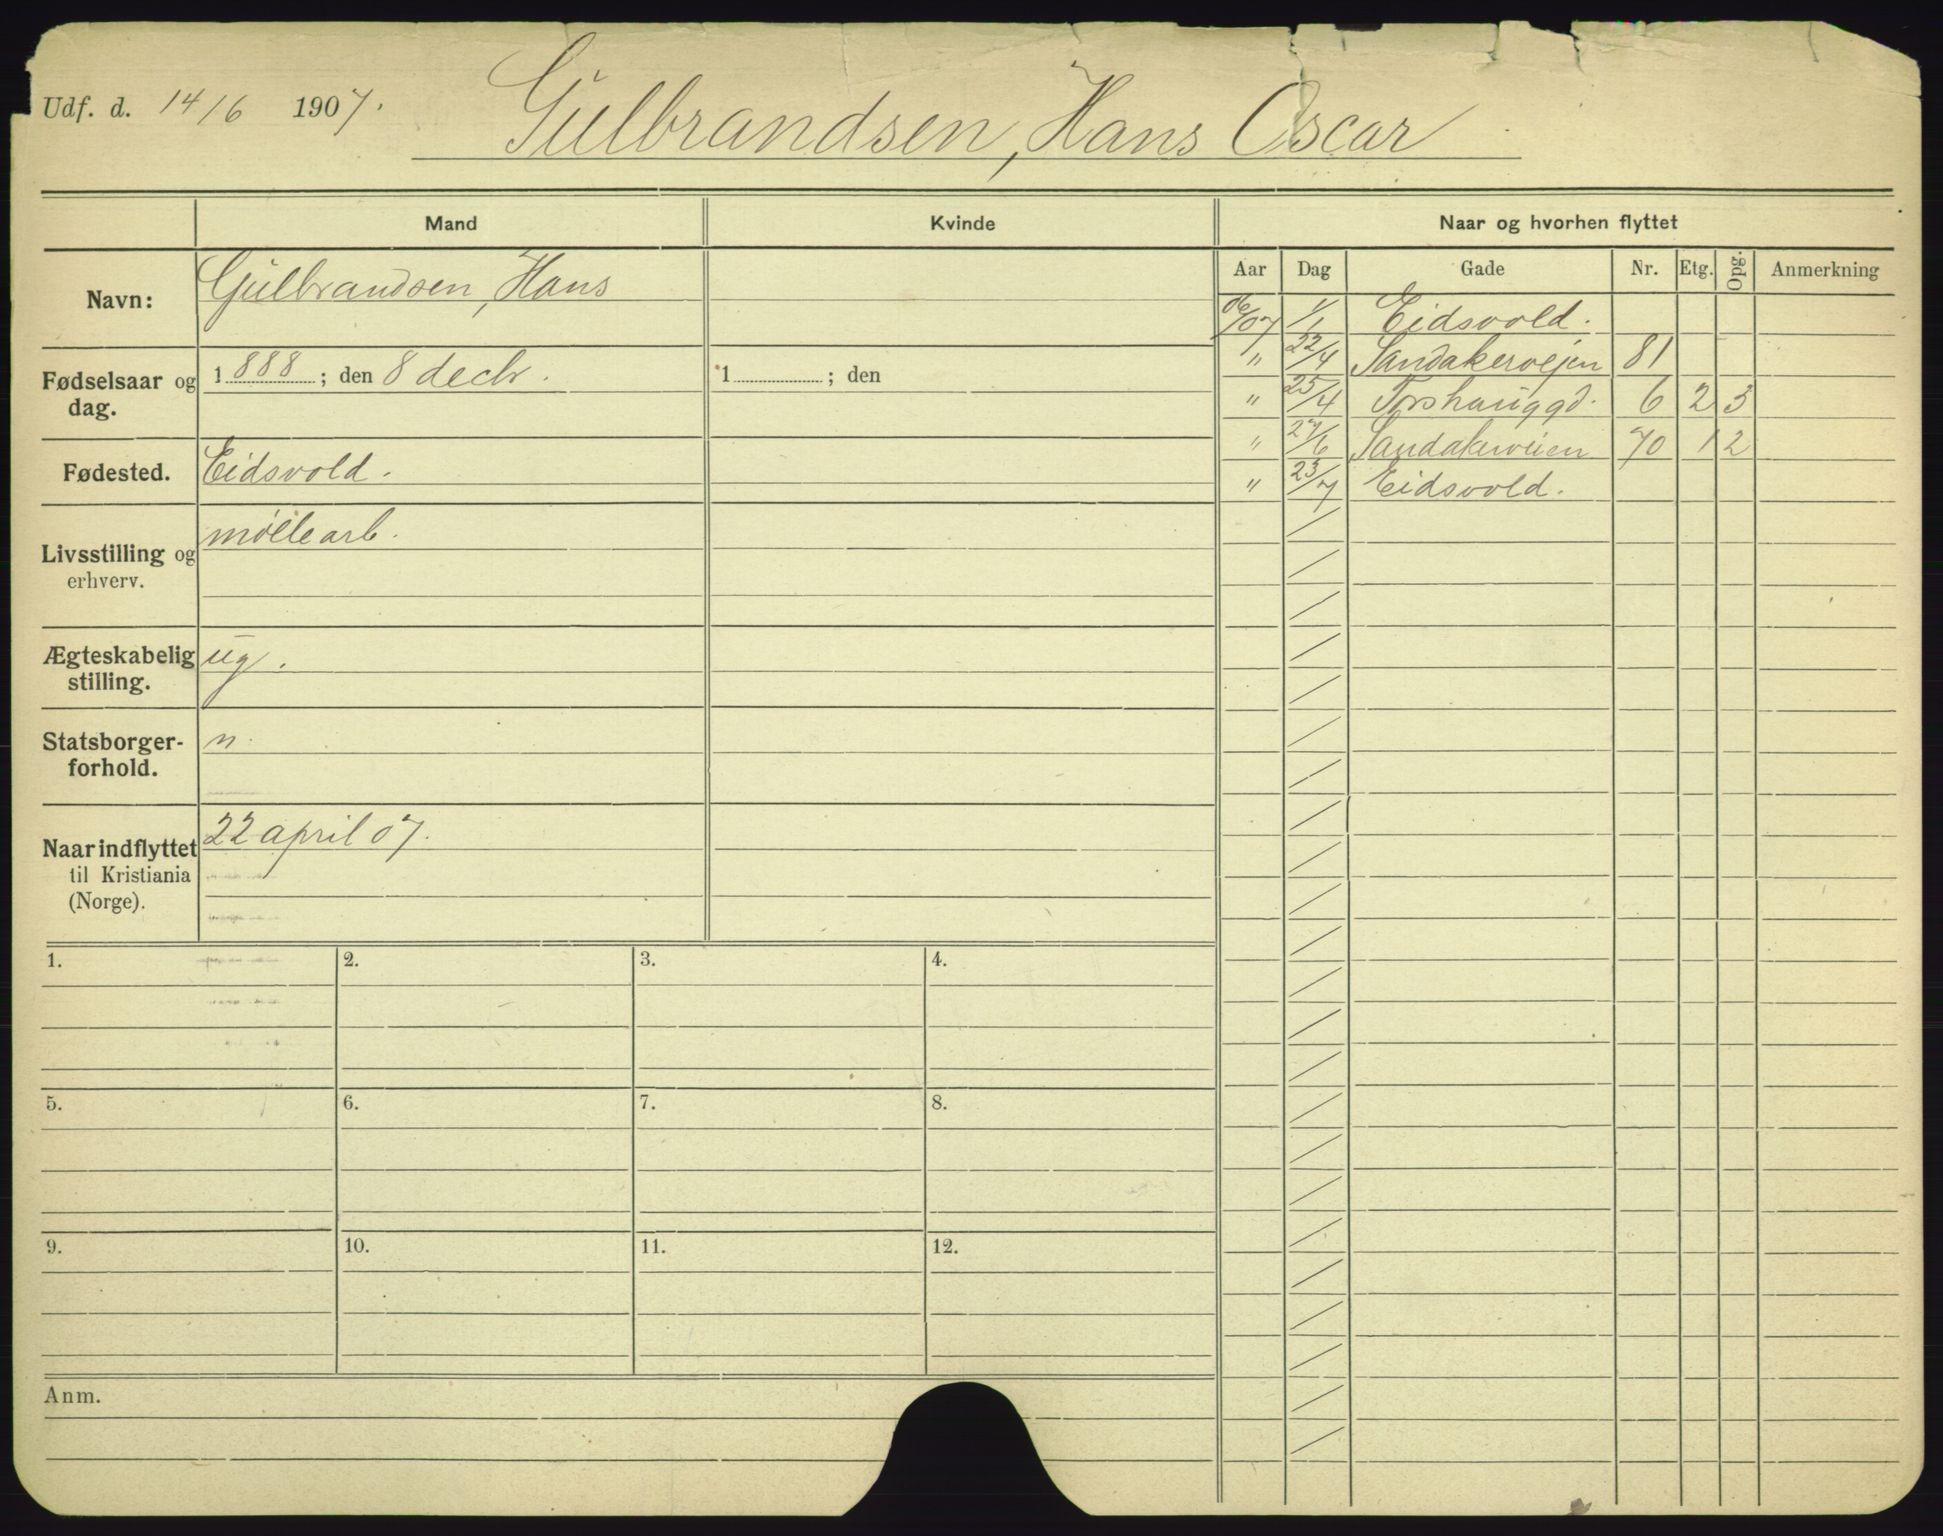 Udf. d. 14/6 1907.
Gulbrandsen, Hans Oscar
Mand
Kvinde
Naar og hvorhen flyttet
Navn:
Gulbrandsen, Hans
Fødselsaar og dag.
1888; den 8 decbr.
1 ; den
Fødested.
Eidsvold.
Livsstilling og
erhverv.
møllearb.
Ægteskabelig
stilling.
ug.
Statsborger-
forhold.
n.
Naar indflyttet
til Kristiania
(Norge).
22 april 07.
Aar Dag Gade Nr. Etg. Opg. Anmerkning
06/07 1/1 Eidsvold.
" 22/4 Sandakervejen 81
" 25/4 Torshauggd. 6 2 3
" 27/6 Sandakerveien 70 1 2
" 23/7 Eidsvold.
1. 2. 3. 4.
5. 6. 7. 8.
9. 10. 11. 12.
Anm.